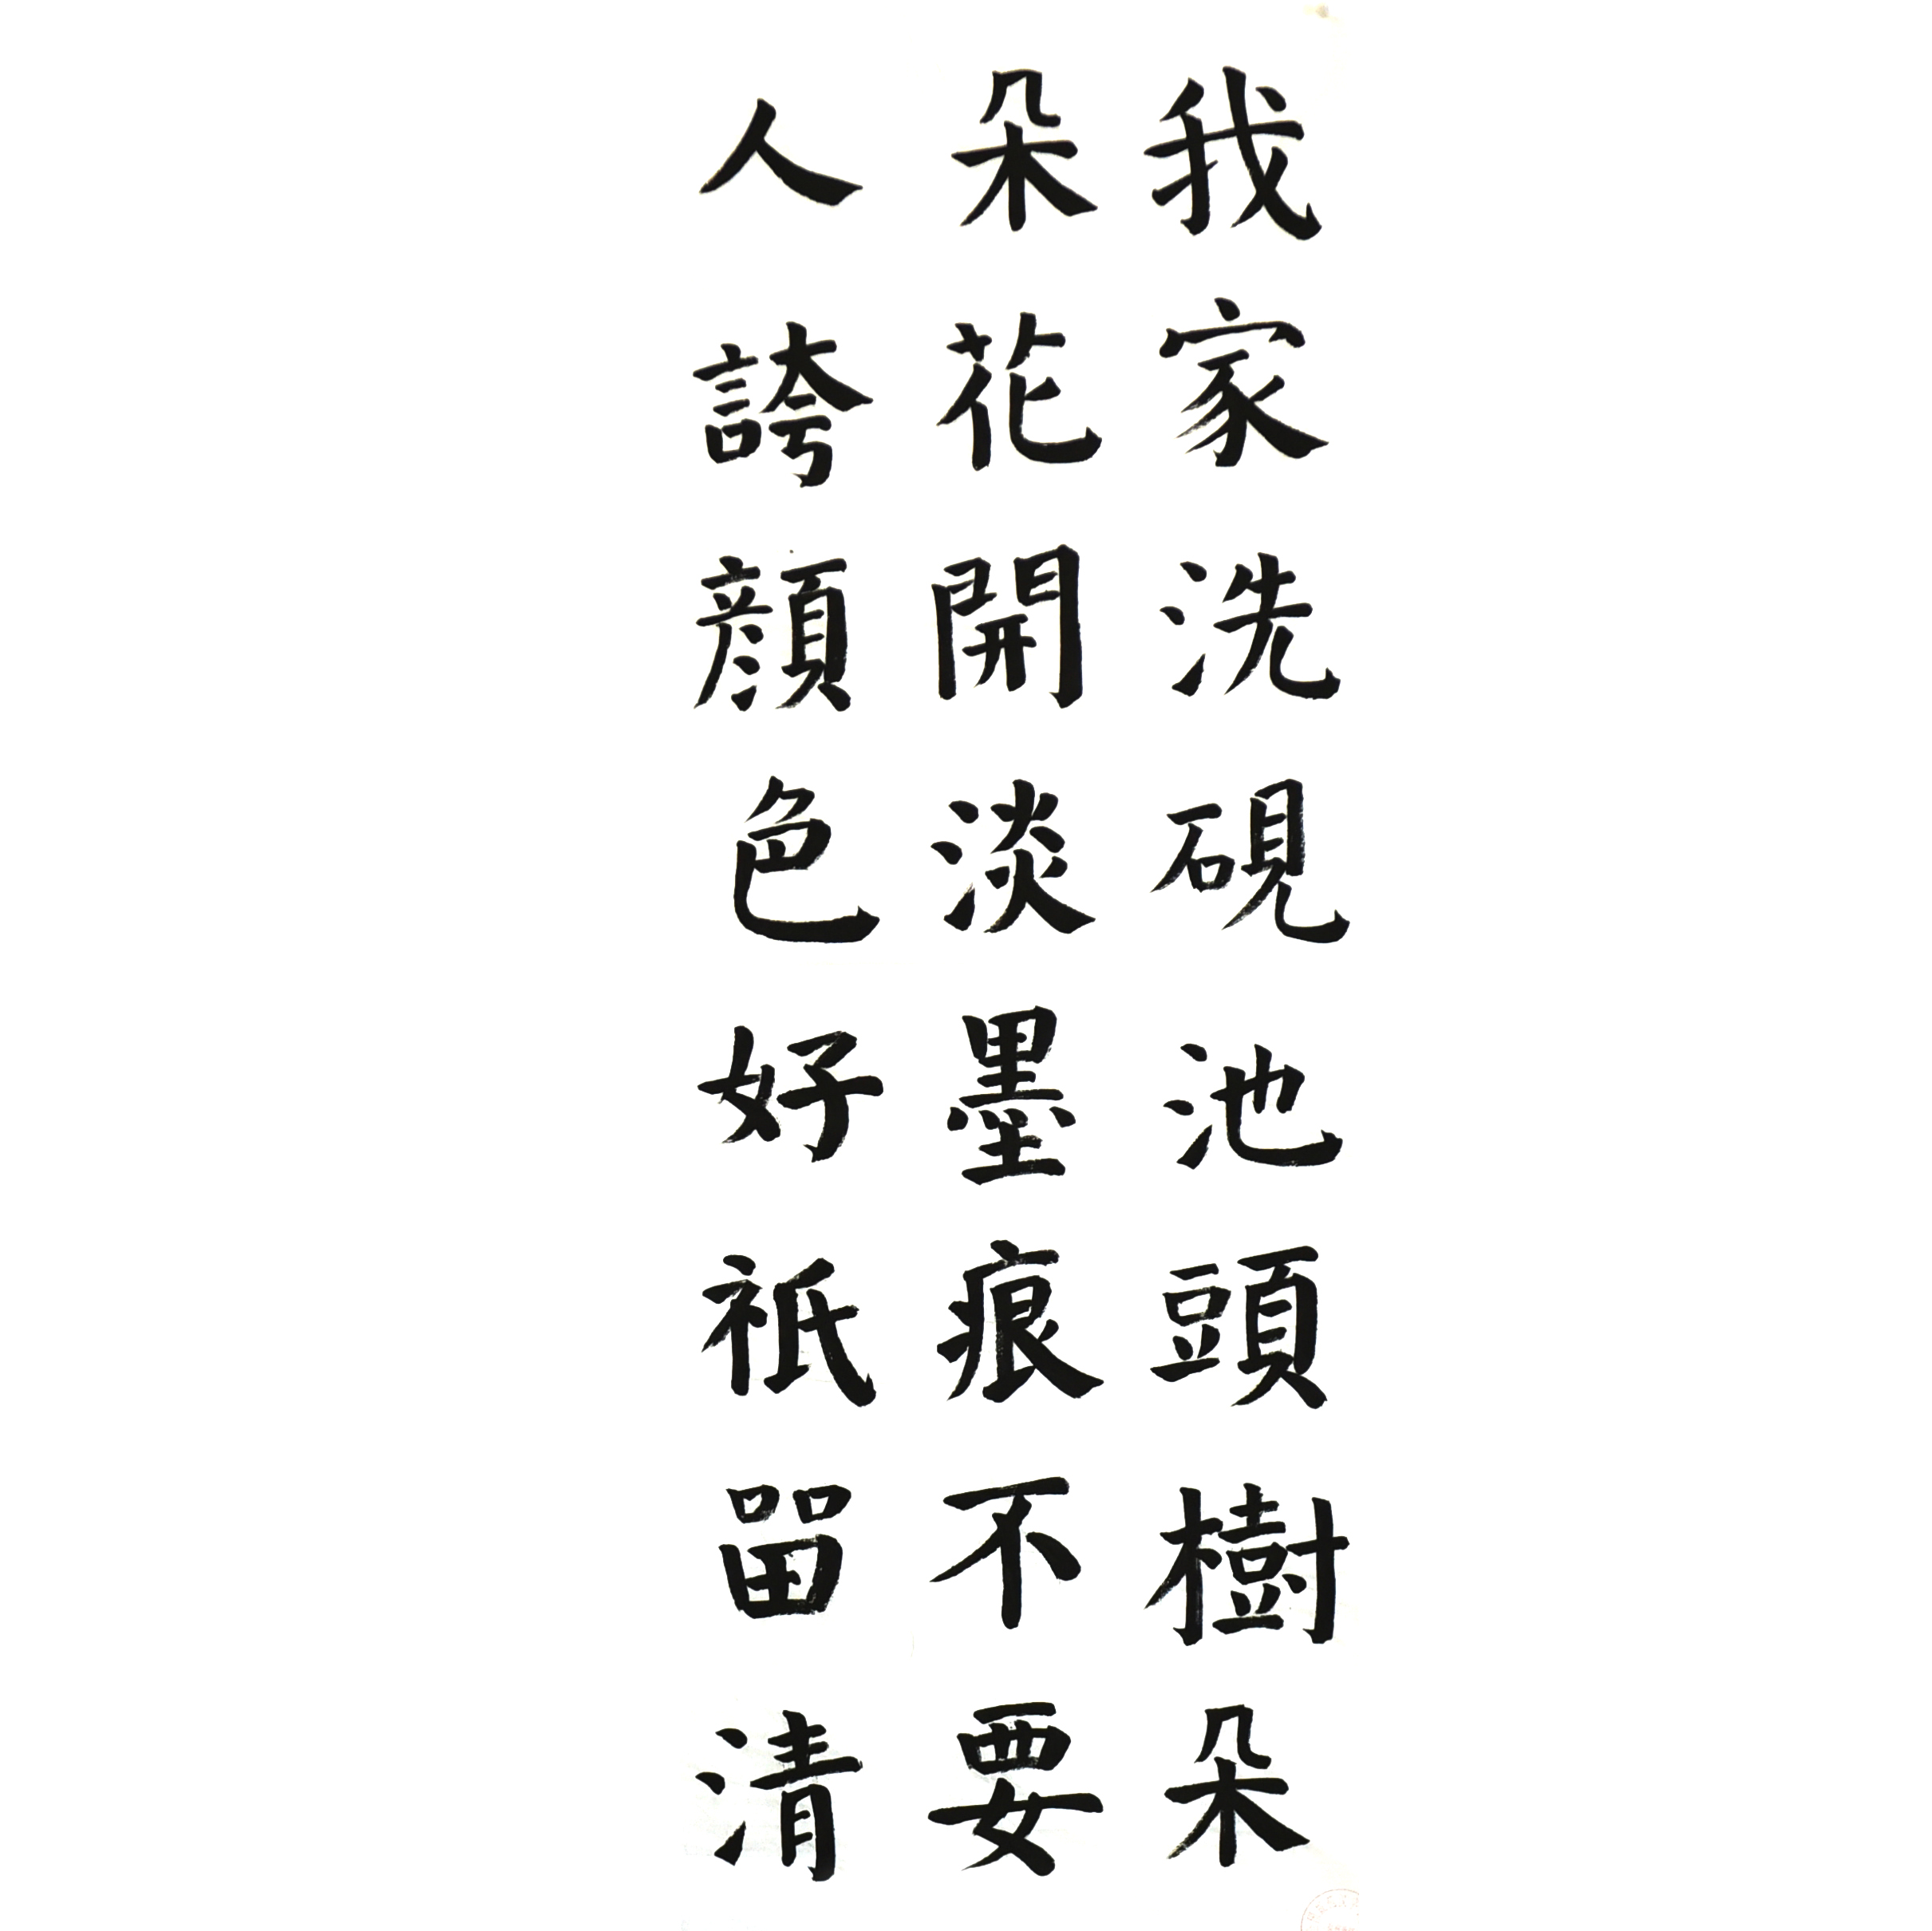 我家洗硯池頭樹朵
朵花開淡墨痕不要
人誇顔色好祇留清